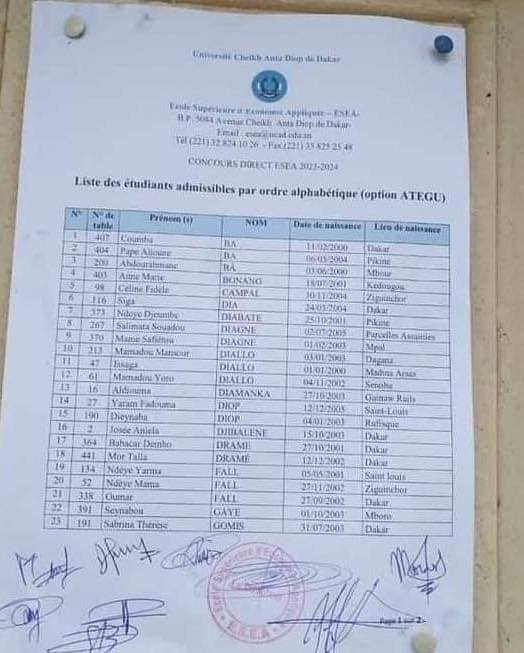 Université Cheikh Anta Diop de Dakar
Ecole Supérieure d'Economie Appliquée – ESEA-
B.P. 5084 Avenue Cheikh Anta Diop de Dakar-
Email : esea@ucad.edu.sn
Tél (221) 32 824 10 26 - Fax (221) 33 825 25 48
CONCOURS DIRECT ESEA 2023-2024
Liste des étudiants admissibles par ordre alphabétique (option ATEGU)
N° N° de table Prénom (s) NOM Date de naissance Lieu de naissance
1 407 Coumba BA 11/02/2000 Dakar
2 404 Pape Alioune BA 06/03/2004 Pikine
3 200 Abdourahmane BA 03/06/2000 Mbour
4 403 Anne Marie BONANG 18/07/2001 Kedougou
5 98 Céline Fidèle CAMPAL 30/11/2004 Ziguinchor
6 116 Siga DIA 24/05/2004 Dakar
7 373 Ndèye Djeumbe DIABATE 25/10/2001 Pikine
8 267 Salimata Souadou DIAGNE 02/07/2005 Parcelles Assainies
9 370 Mame Safiétou DIAGNE 01/02/2003 Mpal
10 213 Mamadou Mansour DIALLO 03/01/2003 Dagana
11 47 Issaga DIALLO 01/01/2000 Madina
12 61 Mamadou Yoro DIALLO 04/11/2002
13 16 Aldiouma DIAMANKA 27/10/2003 Guinaw Rails
14 27 Yaram Fadouma DIOP 12/12/2005 Saint-Louis
15 190 Dieynaba DIOP 04/01/2003 Rufisque
16 2 Josée Aniela DJIBALENE 15/10/2003 Dakar
17 364 Babacar Dembo DRAME 27/10/2001 Dakar
18 441 Mor Talla DRAMÉ 12/12/2002 Dakar
19 134 Ndèye Yarma FALL 05/05/2001 Saint louis
20 52 Ndèye Mama FALL 27/11/2002 Ziguinchor
21 338 Oumar FALL 27/09/2002 Dakar
22 391 Seynabou GAYE 01/10/2003 Mboro
23 191 Sabrina Thérèse GOMIS 31/07/2003 Dakar
E.S.E.A
Page 1 sur 2